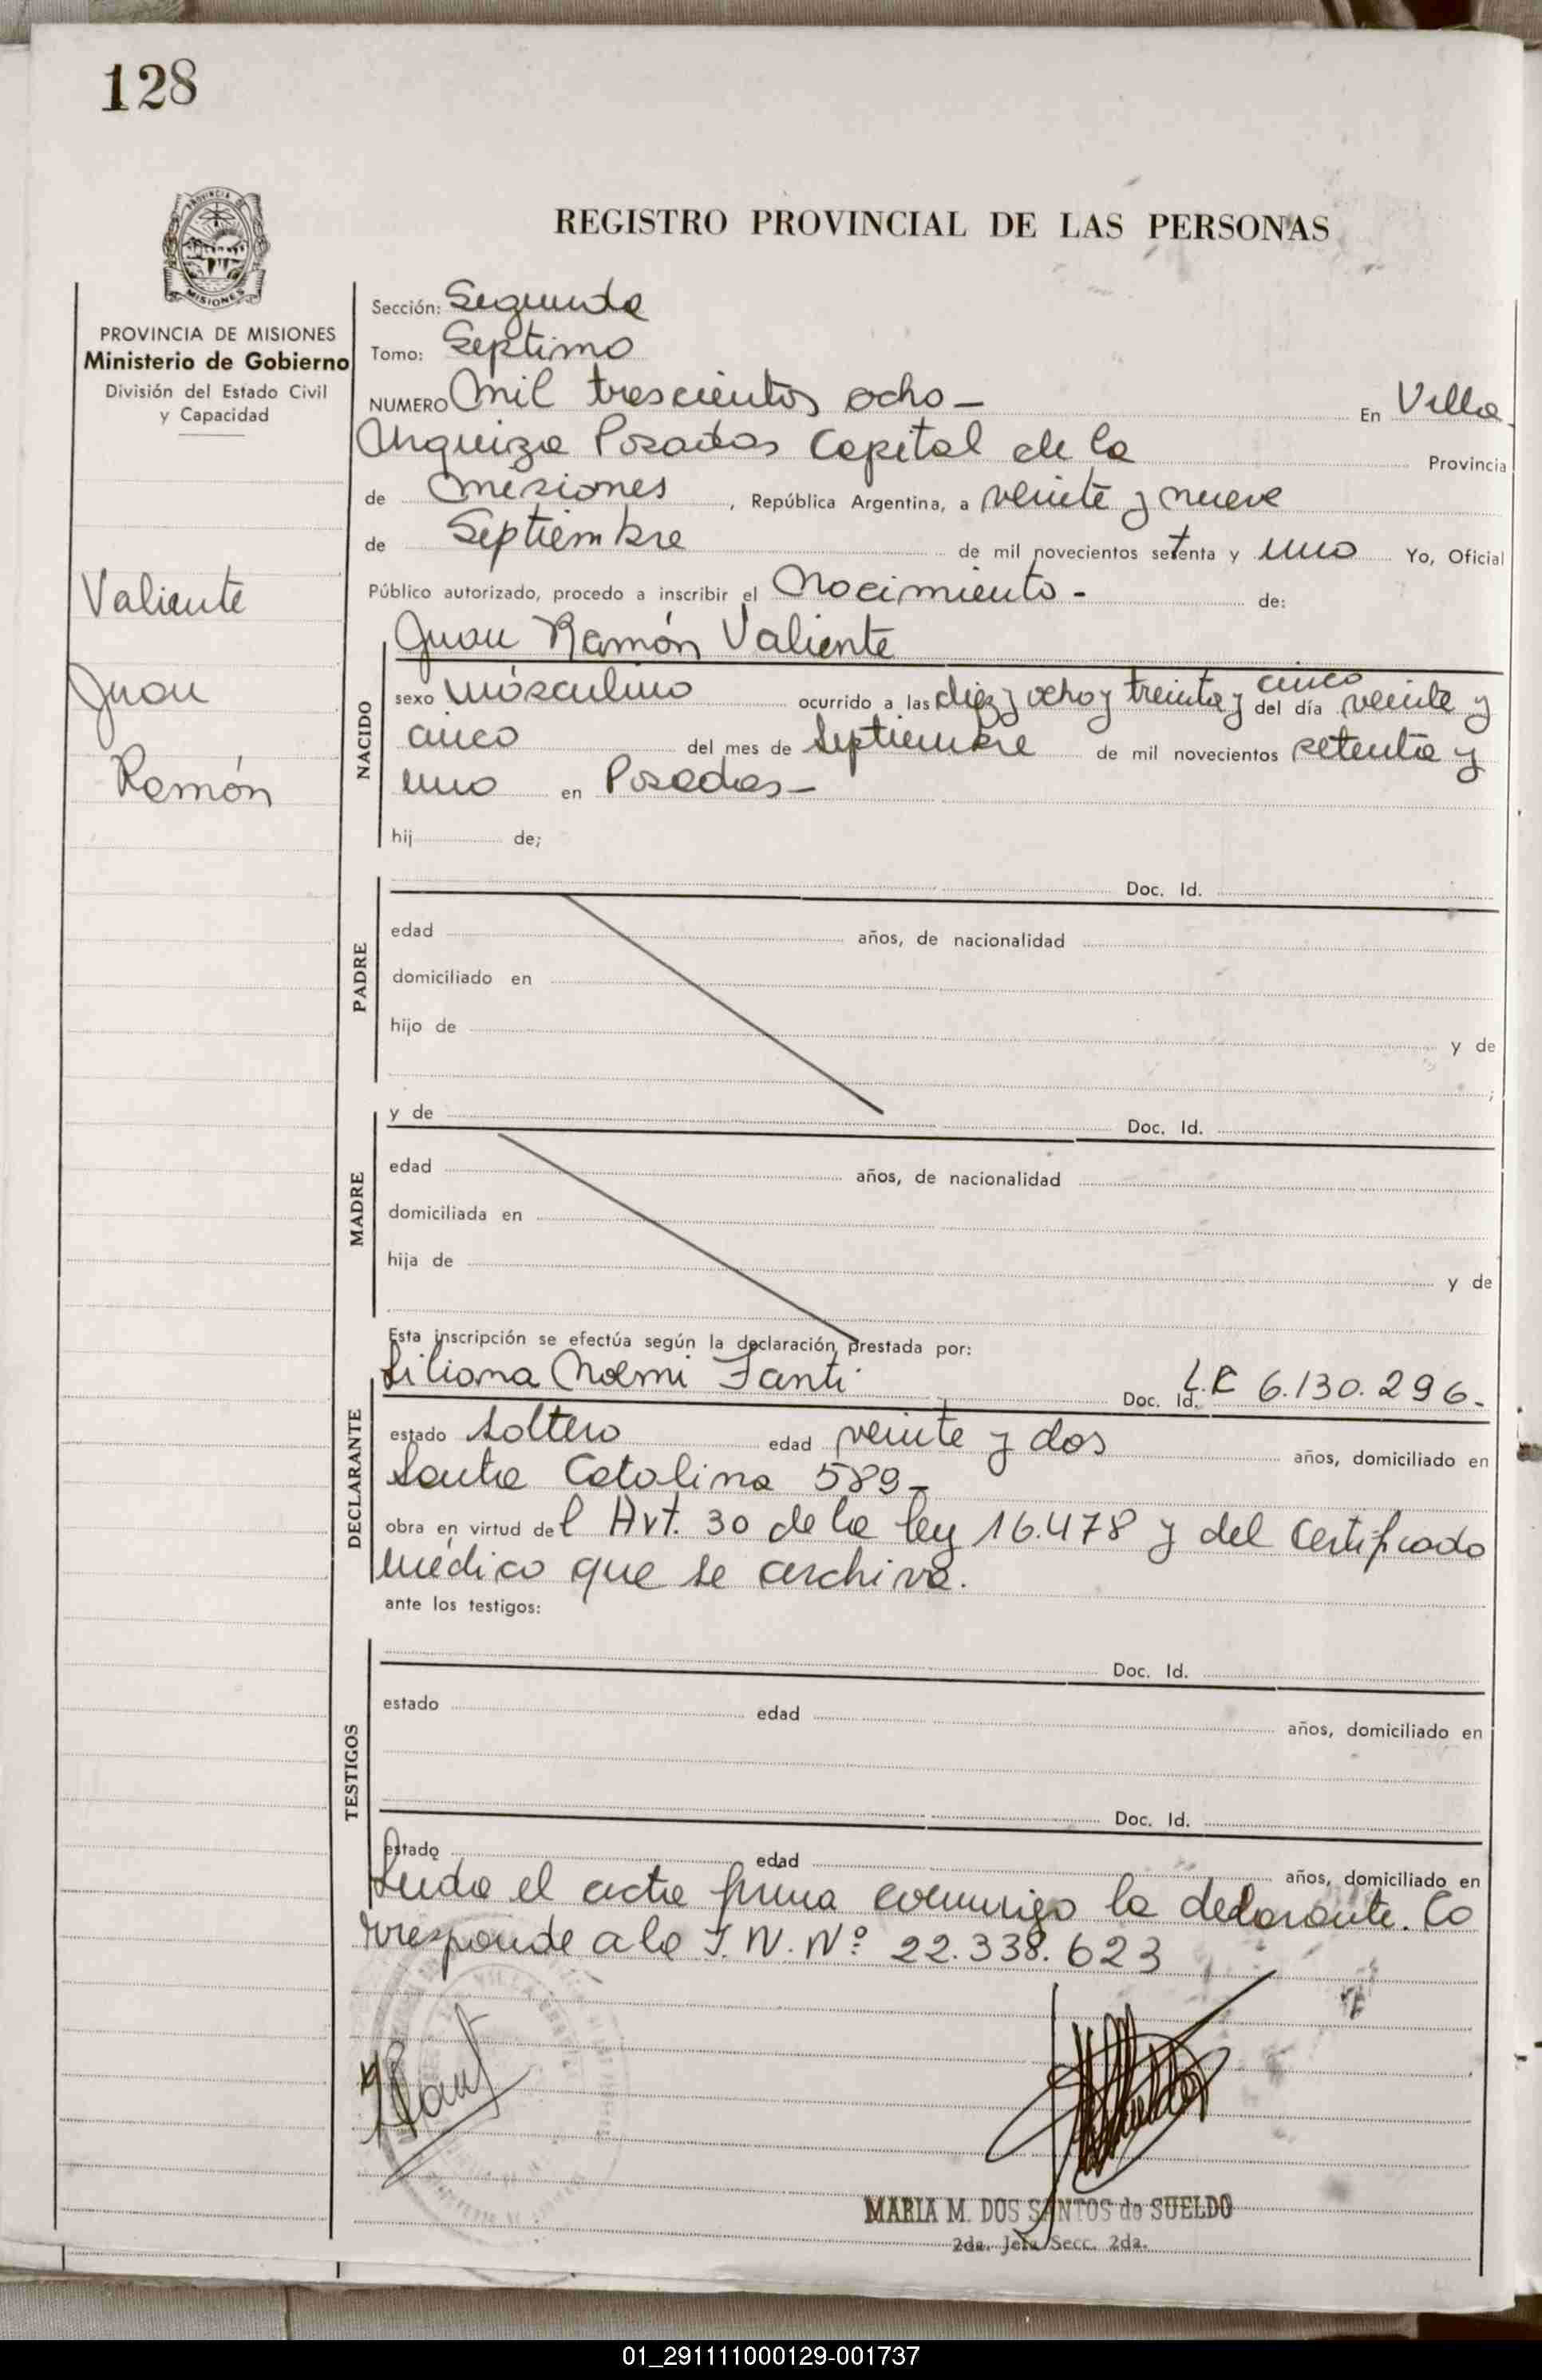 128
PROVINCIA DE
MISIONES
REGISTRO PROVINCIAL DE LAS PERSONAS
PROVINCIA DE MISIONES
Ministerio de Gobierno
División del Estado Civil
y Capacidad
Valiente
Juan
Ramón
Sección: Segunda
Tomo: Septimo
NUMERO Mil trescientos ocho - En Villa
Urquiza Posadas Capital de la Provincia
de Misiones, República Argentina, a veinte y nueve
de Septiembre de mil novecientos setenta y uno Yo, Oficial
Público autorizado, procedo a inscribir el Nacimiento - de:
NACIDO
Juan Ramón Valiente
sexo másculino ocurrido a las diez y ocho y treinta y cinco del día veinte y
cinco del mes de Septiembre de mil novecientos setenta y
uno en Posadas -
hij de;
PADRE
Doc. Id.
edad años, de nacionalidad
domiciliado en
hijo de y de
;
MADRE
y de Doc. Id.
edad años, de nacionalidad
domiciliada en
hija de y de
Esta inscripción se efectúa según la declaración prestada por:
DECLARANTE
Liliana Noemi Santi Doc. Id. L.C 6.130.296-
estado soltero edad veinte y dos años, domiciliado en
Santa Catalina 589-
obra en virtud del Art. 30 de la ley 16.478 y del Certificado
médico que se archiva.
ante los testigos:
TESTIGOS
Doc. Id.
estado edad años, domiciliado en
Doc. Id.
estado edad años, domiciliado en
Leida el acta firma conmigo la declarante. Co
rresponde a la I.N. Nº 22.338.623
MARIA M. DOS SANTOS de SUELDO
2da. Jefa Secc. 2da.
01_291111000129-001737